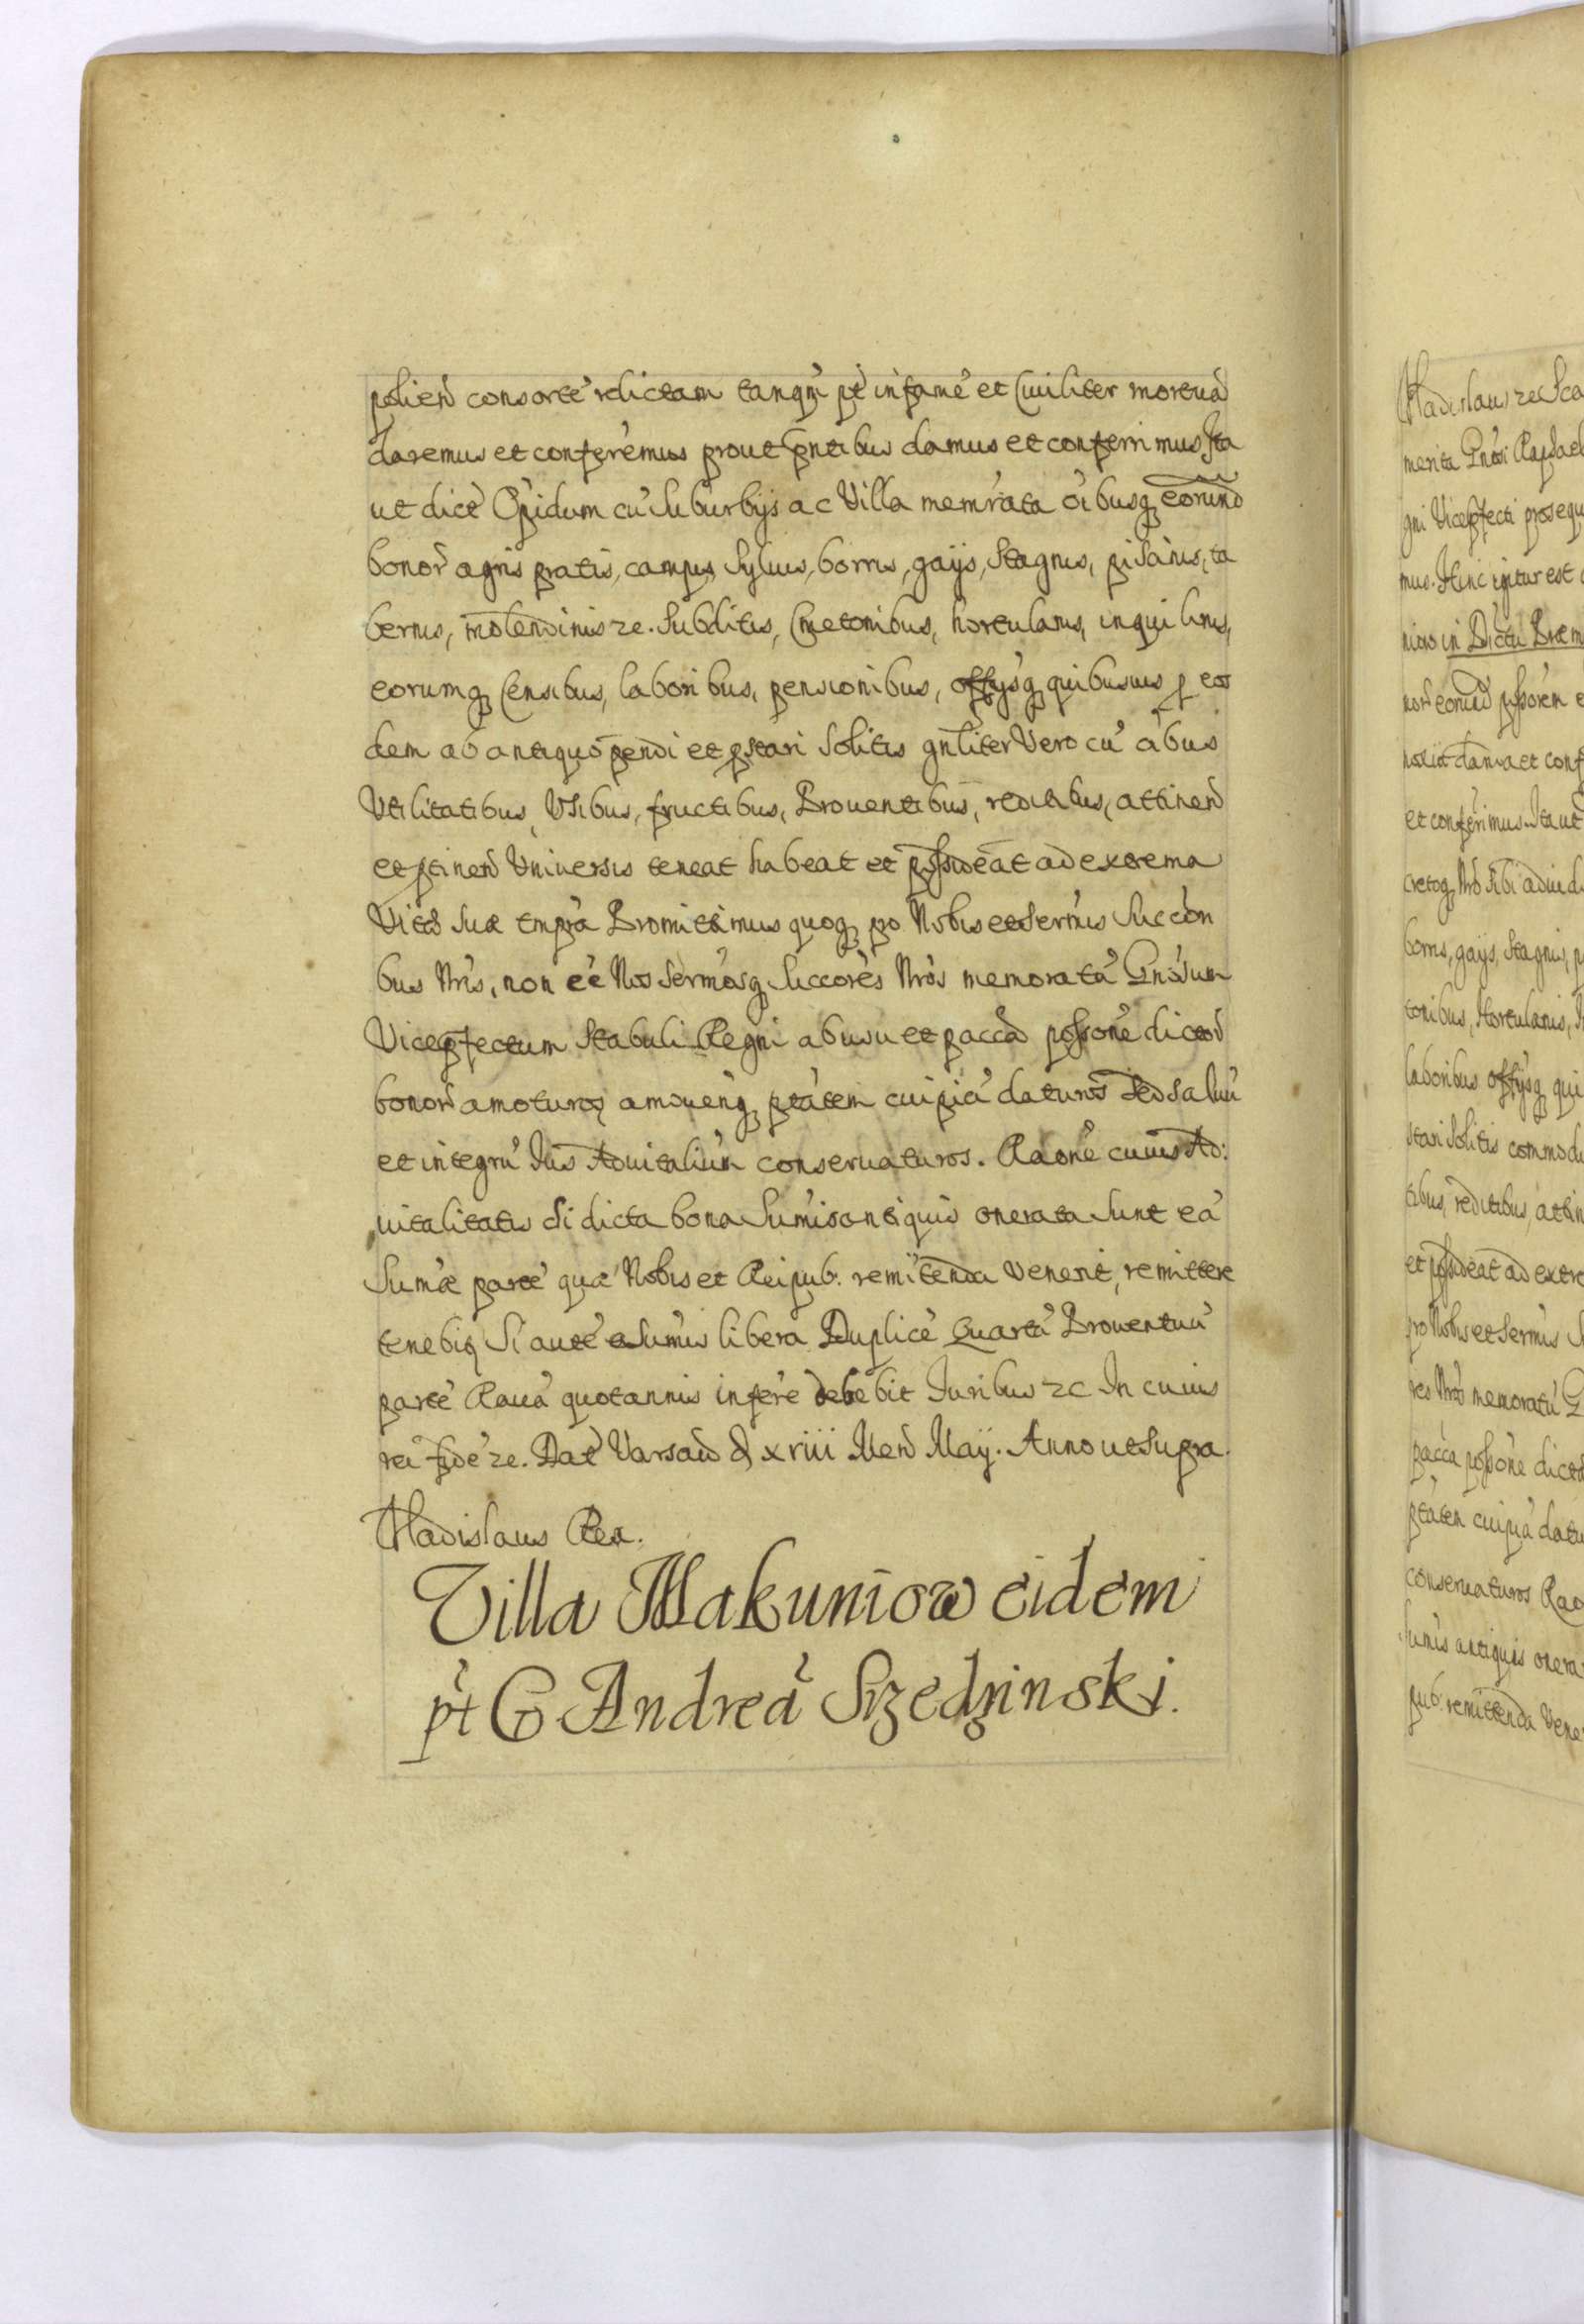 polien consorte relictam tanqm pt infame et Ciuiliter mortua
daremus et conferemus prout pntibus damus et conferrimus Ita
ut dict Opidum cu Suburbijs ac Villa memrata oibusq eorund
bonor agris pratis, campis, Syluis, borris, gaijs, Stagnis, piscinis, ta
bernis, molendinis &c. Subditis, Cmetonibus, hortulanis, inquilinis,
eorumq Censibus, laboribus, pensionibus, offijsq quibusuis p eos
dem ab antiquo pendi et pstari Solitis gnliter Vero cu oibus
Vtilitatibus, Vsibus, fructibus, Prouentibus, reditibus, attinen
et ptinen Vniuersis teneat habeat et possideat ad extrema
Vitæ Suæ tempra Promittimus quoq pro Nobis et Sermis Succon
bus Nris, non ee Nos Sermosq Succores Nros memorata Gnosum
Vicepfectum Stabuli Regni ab usu et pacca possone dictor
bonor amoturos amouenq ptatem cuipia daturos Sed saluu
et integru Ius Aduitaliun conseruaturos. Raone cuius Ad:
uitalitatis Si dicta bona Sumis antiquis onerata Sunt ea
Sumæ parte quæ Nobis et Reipub. remittenda Venerit, remittere
tenebit Si aute a Sumis libera Duplice Quarta Prouentuu
parte Raua quotannis infere debebit Iuribus &c In cuius
rei fide &c. Dat Varsau D xviii Men Maij. Anno ut Supra.
Vladislaus Rex.
Villa Makuniow eidem
pt G Andrea Srzedzinski.
Vladislaus &c
merita Gnosi Raphael
gni Vicepfecti prosequ
mus. Hinc igitur est
in Dictu Præm
nor eorund possorem e
et conferimus. Ita ut
cretoq Nro Sibi adiud
borris, gaijs, Stagnis, p
tonibus, Hortulanis, I
laboribus offijsq qui
stari Solitis commodi
tibus, reditibus, attin
et possideat ad extre
pro Nobis et Sermis S
res Nros memoratu G
pacca possone dicto
ptatem cuipia datu
conseruaturos Rao
Sumis antiquis onera
pub. remittenda Vene